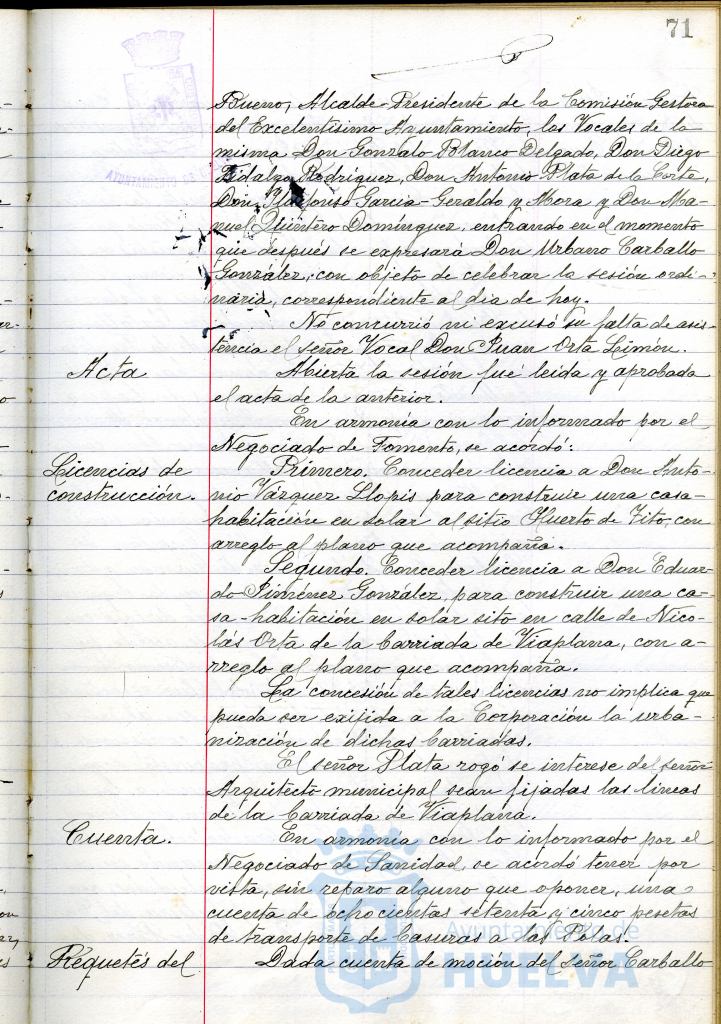 71
Bueno, Alcalde-Presidente de la Comisión Gestora
del Excelentísimo Ayuntamiento, los Vocales de la
misma Don Gonzalo Blanco Delgado, Don Diego
Hidalgo Rodríguez, Don Antonio Plata de la Corte,
Don Ildefonso García-Geraldo y Mora y Don Ma-
nuel Quintero Domínguez, entrando en el momento
que después se expresará Don Urbano Carballo
González, con objeto de celebrar la sesión ordi-
naria, correspondiente al día de hoy.
No concurrió ni excusó su falta de asis-
tencia el señor Vocal Don Juan Orta Limón.
Acta
Abierta la sesión fué leida y aprobada
el acta de la anterior.
En armonía con lo informado por el
Negociado de Fomento, se acordó:
Licencias de
construcción.
Primero. Conceder licencia a Don Anto-
nio Vázquez Llopis para construir una casa-
habitación en solar al sitio Huerto de Tito, con
arreglo al plano que acompaña.
Segundo. Conceder licencia a Don Eduar-
do Jiménez González, para construir una ca-
sa-habitación en solar sito en calle de Nico-
lás Orta de la barriada de Viaplana, con a-
rreglo al plano que acompaña.
La concesión de tales licencias no implica que
pueda ser exijida a la Corporación la urba-
nización de dichas barriadas.
El señor Plata rogó se interese del señor
Arquitecto municipal sean fijadas las líneas
de la barriada de Viaplana.
Cuenta.
En armonía con lo informado por el
Negociado de Sanidad, se acordó tener por
vista, sin reparo alguno que oponer, una
cuenta de ochocientas setenta y cinco pesetas
de transporte de basuras a las Polas.
Requetés del
Dada cuenta de moción del señor Carballo
Ayuntamiento de
HUELVA